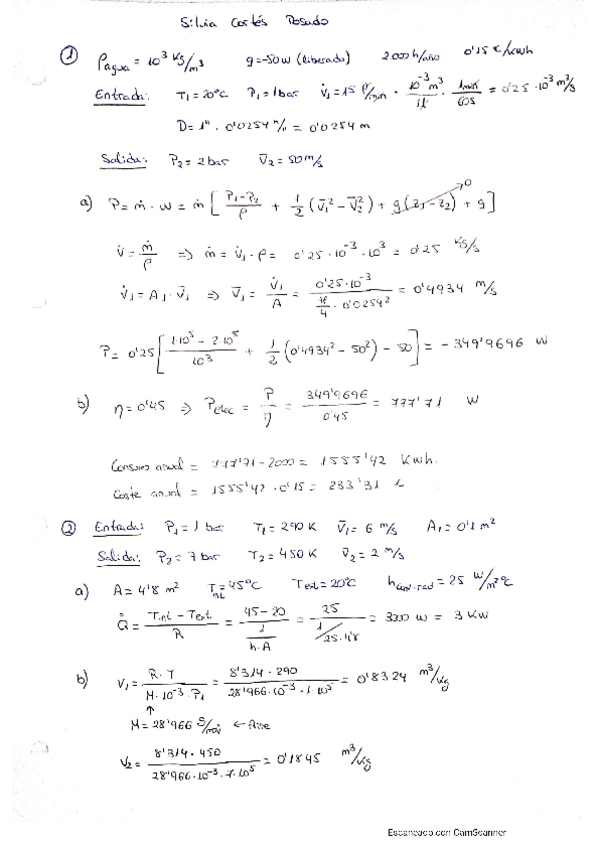 Silvia Cortés Posado
① ρagua = 10³ kg/m³ q=-50w (liberado) 2000h/año 0'15 €/kwh
Entrada: T₁=20°C P₁=1bar V̇₁=15 l/min · 10⁻³m³/1l · 1min/60s = 0'25·10⁻³ m³/s
D=1"· 0'0254 m/" = 0'0254 m
Salida: P₂=2bar V̄₂=50 m/s
a) P= ṁ·w = ṁ [ (P₁-P₂)/ρ + 1/2 (V̄₁²-V̄₂²) + g(z₁-z₂)→0 + q]
V̇ = ṁ/ρ => ṁ = V̇₁·ρ = 0'25·10⁻³·10³ = 0'25 kg/s
V̇₁=A₁·V̄₁ => V̄₁= V̇₁/A = 0'25·10⁻³/(π/4 · 0'0254²) = 0'4934 m/s
P= 0'25[ (1·10⁵ - 2·10⁵)/10³ + 1/2 (0'4934² - 50²) - 50] = -349'9696 W
b) η=0'45 => Pelec = P/η = 349'9696/0'45 = 777'71 W
Consumo anual = 777'71·2000 = 1555'42 Kwh.
Coste anual = 1555'42 · 0'15 = 233'31 €
② Entrada: P₁=1 bar T₁=290K V̄₁=6 m/s A₁=0'1 m²
Salida: P₂=7bar T₂=450K V̄₂=2 m/s
a) A=4'8 m² Tint=45°C Text=20°C hconv-rad=25 W/m²°C
Q̇ = (Tint - Text)/R = (45-20)/(1/(h·A)) = 25/(1/25·4'8) = 3000 w = 3 Kw
b) V₁= R·T/(M·10⁻³·P₁) = 8'314·290/(28'966·10⁻³·1·10⁵) = 0'8324 m³/kg
↑
M=28'966 g/mol ← Aire
V₂= 8'314·450/(28'966·10⁻³·7·10⁵) = 0'1845 m³/kg
Escaneado con CamScanner